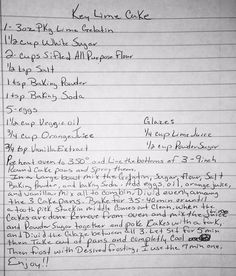 Key Lime Cake
1- 3oz Pkg Lime Gelatin
1 1/2 cup White Sugar
2- cups Sifted All Purpose Flour
1/2 tsp Salt
1 tsp Baking Powder
1 tsp Baking Soda
5-eggs
1 1/2 cup Veggie oil Glaze:
3/4 cup Orange Juice 1/4 cup Lime Juice
3/4 tsp Vanilla Extract 1/2 cup Powder Sugar
Pre heat oven to 350° and Line the bottoms of 3-9inch
Round Cake pans and Spray them.
In a Large bowl mix the Gelatin, Sugar, flour, Salt
Baking Powder, and baking Soda. Add eggs, oil, orange juice,
and vanilla. mix all to combin, Divid evenly among
the 3 Cake pans. Bake for 35-40min or until
a tooth pick Stuck in middle Comes out Clean. when the
Cakes are done Remove from oven and mix the juice
and Powder Sugar together and poke Cakes with a fork,
and Divid the Glaze between All 3. Let Sit for 5 min
then Take out of pans and completly Cool
Then frost with Desired frosting, I use the 7 min one.
Enjoy!!